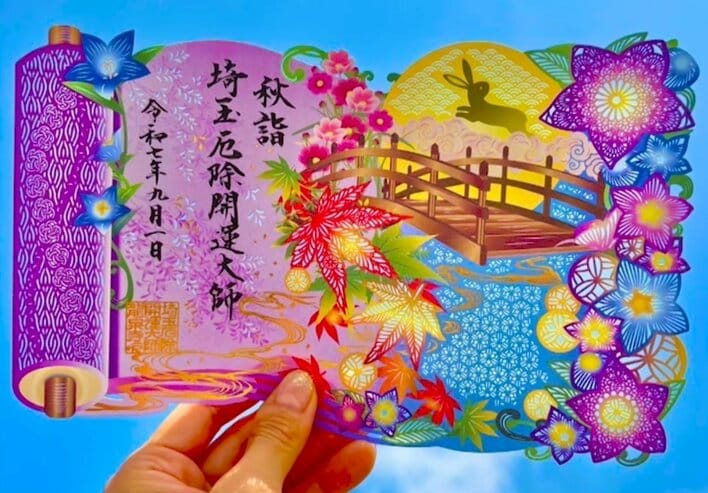 秋詣
埼玉厄除開運大師
令和七年九月一日